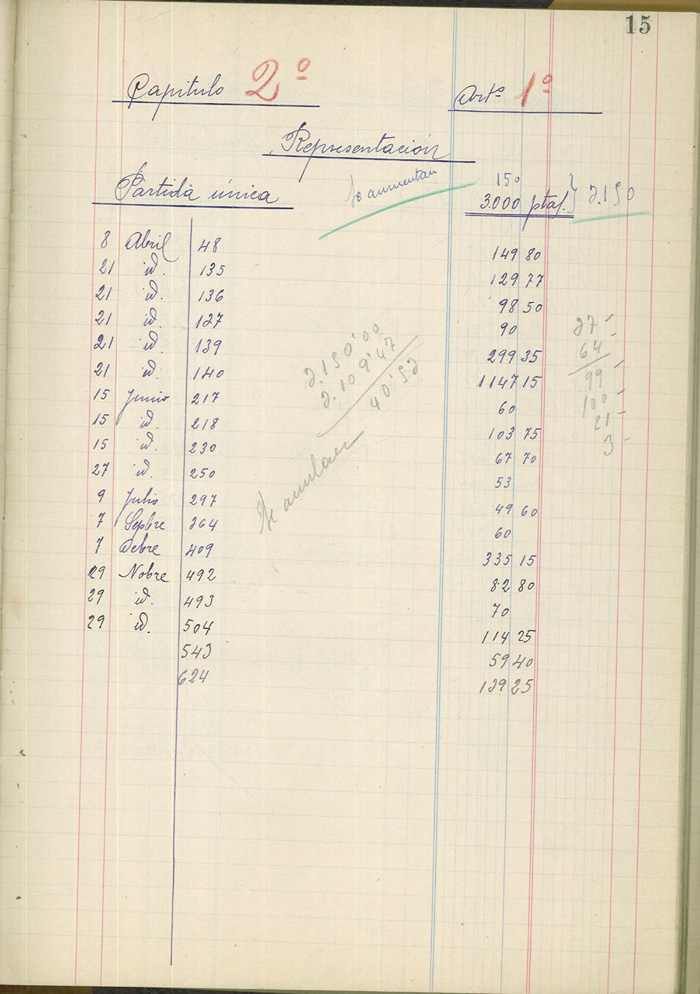 15
Capítulo 2º
Artº 1º
Representación
Partida única
Se aumentan
150
3.000 ptas. } 3.150
8 Abril 48 149 80
21 id. 135 129 77
21 id. 136 98 50
21 id. 137 90
21 id. 139 299 35
21 id. 140 1147 15
15 Junio 217 60
15 id. 218 103 75
15 id. 230 67 70
27 id. 250 53
9 Julio 297 49 60
7 Sepbre 364 60
7 Ocbre 409 335 15
29 Nobre 492 82 80
29 id. 493 70
29 id. 504 114 25
543 59 40
624 139 25
3.150'00
3.109'47
40'53
Se anulan
37
64
99
100
21
3